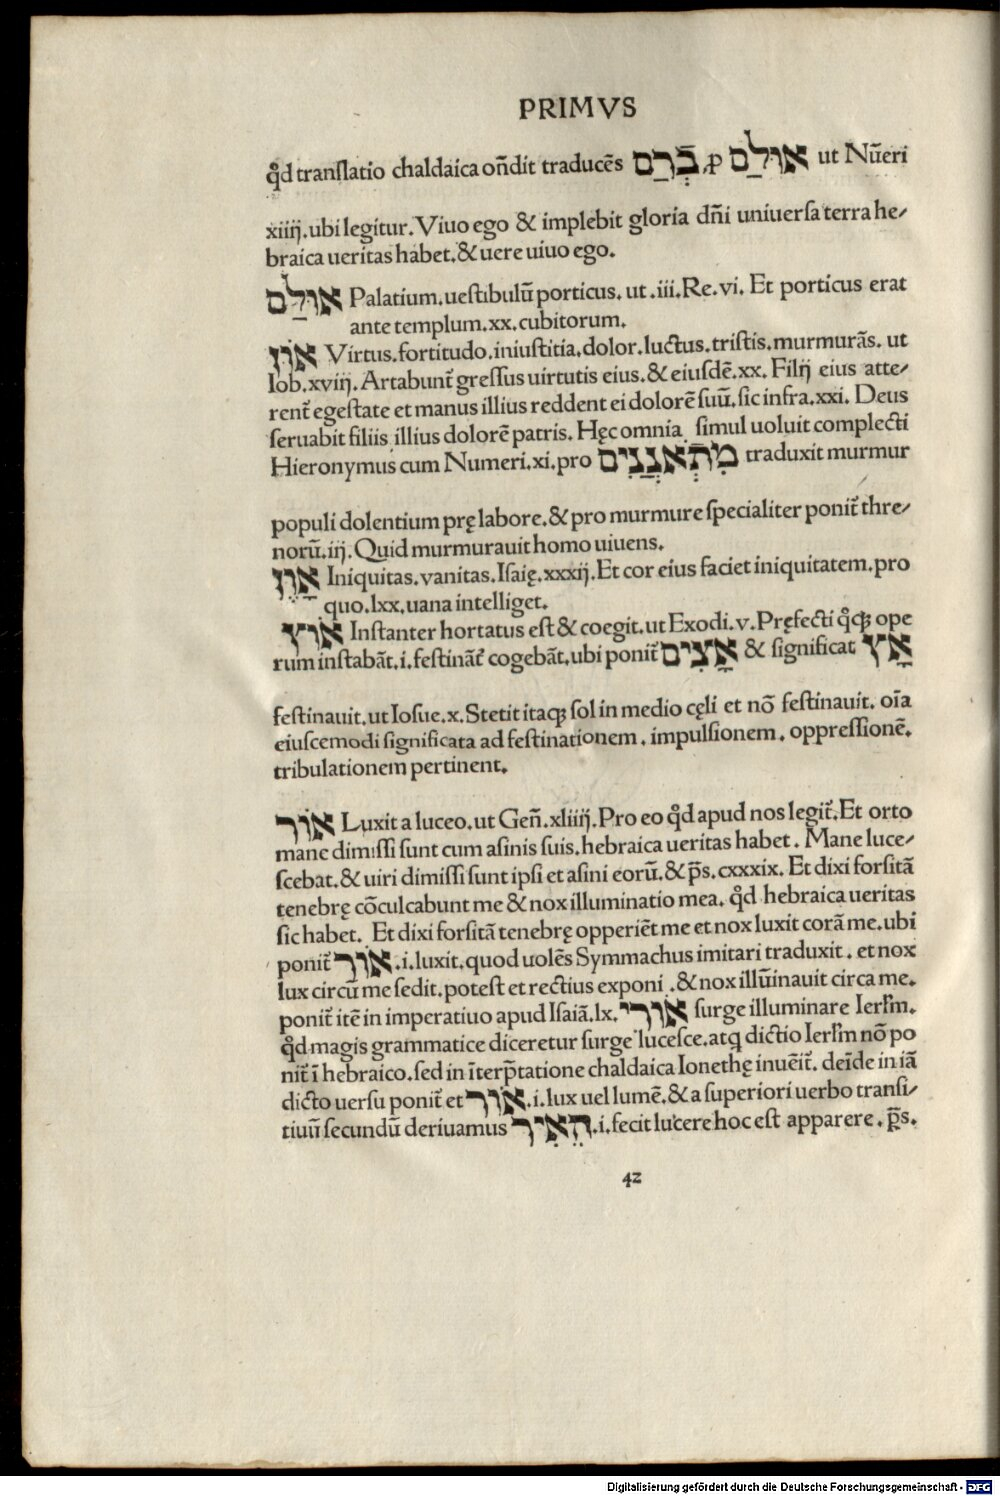 PRIMVS
qd̊ tranſlatio chaldaica on̄dit traducēs בְּרַם ꝓ אוּלַם ut Nūeri
xiiij.ubi legitur.Viuo ego & implebit gloria dn̄i uniuerſa terra he⸗
braica ueritas habet.&uere uiuo ego.
אוּלַם Palatium.ueſtibulū porticus. ut .iii.Re.vi. Et porticus erat
ante templum.xx.cubitorum.
אוֹן Virtus.fortitudo.iniuſtitia.dolor.luctus.triſtis.murmurās. ut
Iob.xviij.Artabunt̃ greſſus uirtutis eius.&eiuſdē.xx. Filij eius atte⸗
rent̃ egeſtate et manus illius reddent ei dolorē ſuū.ſic infra.xxi. Deus
ſeruabit filiis illius dolorē patris.Hęc omnia ſimul uoluit complecti
Hieronymus cum Numeri.xi.pro מִתְאֹנֲנִים traduxit murmur
populi dolentium prę labore.&pro murmure ſpecialiter ponit̃ thre⸗
norū.iij.Quid murmurauit homo uiuens.
אָוֶן Iniquitas.vanitas.Iſaię.xxxij.Et cor eius faciet iniquitatem.pro
quo.lxx.uana intelliget.
אוֹץ Inſtanter hortatus eſt & coegit.ut Exodi.v.Pręfecti qͦꝗꝫ ope
rum inſtabāt.i.feſtināt̃ cogebāt.ubi ponit̃ אָצִים & ſignificat אָץ
feſtinauit.ut Ioſue.x.Stetit itaqꝫ ſol in medio cęli et nō feſtinauit. oīa
eiuſcemodi ſignificata ad feſtinationem . impulſionem . oppreſſionē.
tribulationem pertinent.
אוֹר Luxit a luceo.ut Gen̄.xliiij.Pro eo qd̊ apud nos legit̃.Et orto
mane dimiſſi ſunt cum aſinis ſuis.hebraica ueritas habet . Mane luce⸗
ſcebat.&uiri dimiſſi ſunt ipſi et aſini eorū.&p̄s.cxxxix. Et dixi forſitā
tenebrę cōculcabunt me & nox illuminatio mea. qd̊ hebraica ueritas
ſic habet. Et dixi forſitā tenebrę opperiēt me et nox luxit corā me.ubi
ponit̃ אוֹר .i.luxit.quod uolēs Symmachus imitari traduxit . et nox
lux circū me ſedit.poteſt et rectius exponi .&nox illūinauit circa me.
ponit̃ itē in imperatiuo apud Iſaiā.lx. אוֹרִי ſurge illuminare Ierłm.
qd̊ magis grammatice diceretur ſurge luceſce.atq̨ dictio Ierłm nō po
nit̃ ī hebraico.ſed in īterp̄tatione chaldaica Ionethę inuēit̃. deīde in iā
dicto uerſu ponit̃ et אוֹר .i.lux uel lumē.&a ſuperiori uerbo tranſi⸗
tiuū ſecundū deriuamus הֵאִיר .i.fecit lucere hoc eſt apparere . p̄s.
42
Digitalisierung gefördert durch die Deutsche Forschungsgemeinschaft - DFG